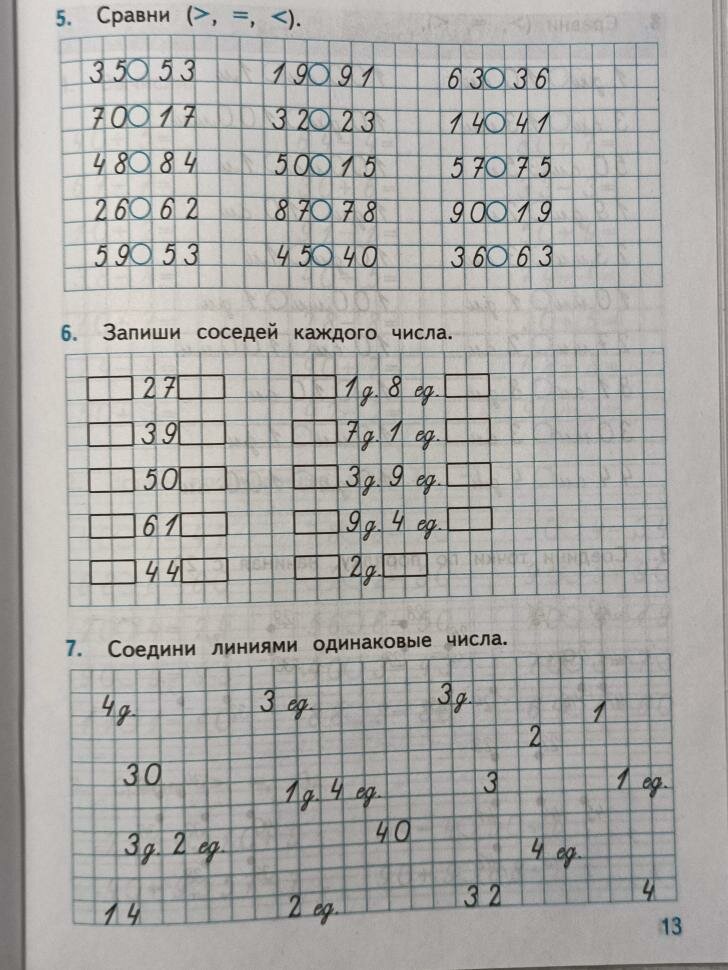 5. Сравни (>, =, <).
35○53 19○91 63○36
70○17 32○23 14○41
48○84 50○15 57○75
26○62 87○78 90○19
59○53 45○40 36○63
6. Запиши соседей каждого числа.
27 1д. 8 ед.
39 7д. 1 ед.
50 3д. 9 ед.
61 9д. 4 ед.
44 2д.
7. Соедини линиями одинаковые числа.
4д. 3 ед. 3д. 1
2
30 1д. 4 ед. 3 1 ед.
3д. 2 ед. 40 4 ед.
14 2 ед. 32 4
13